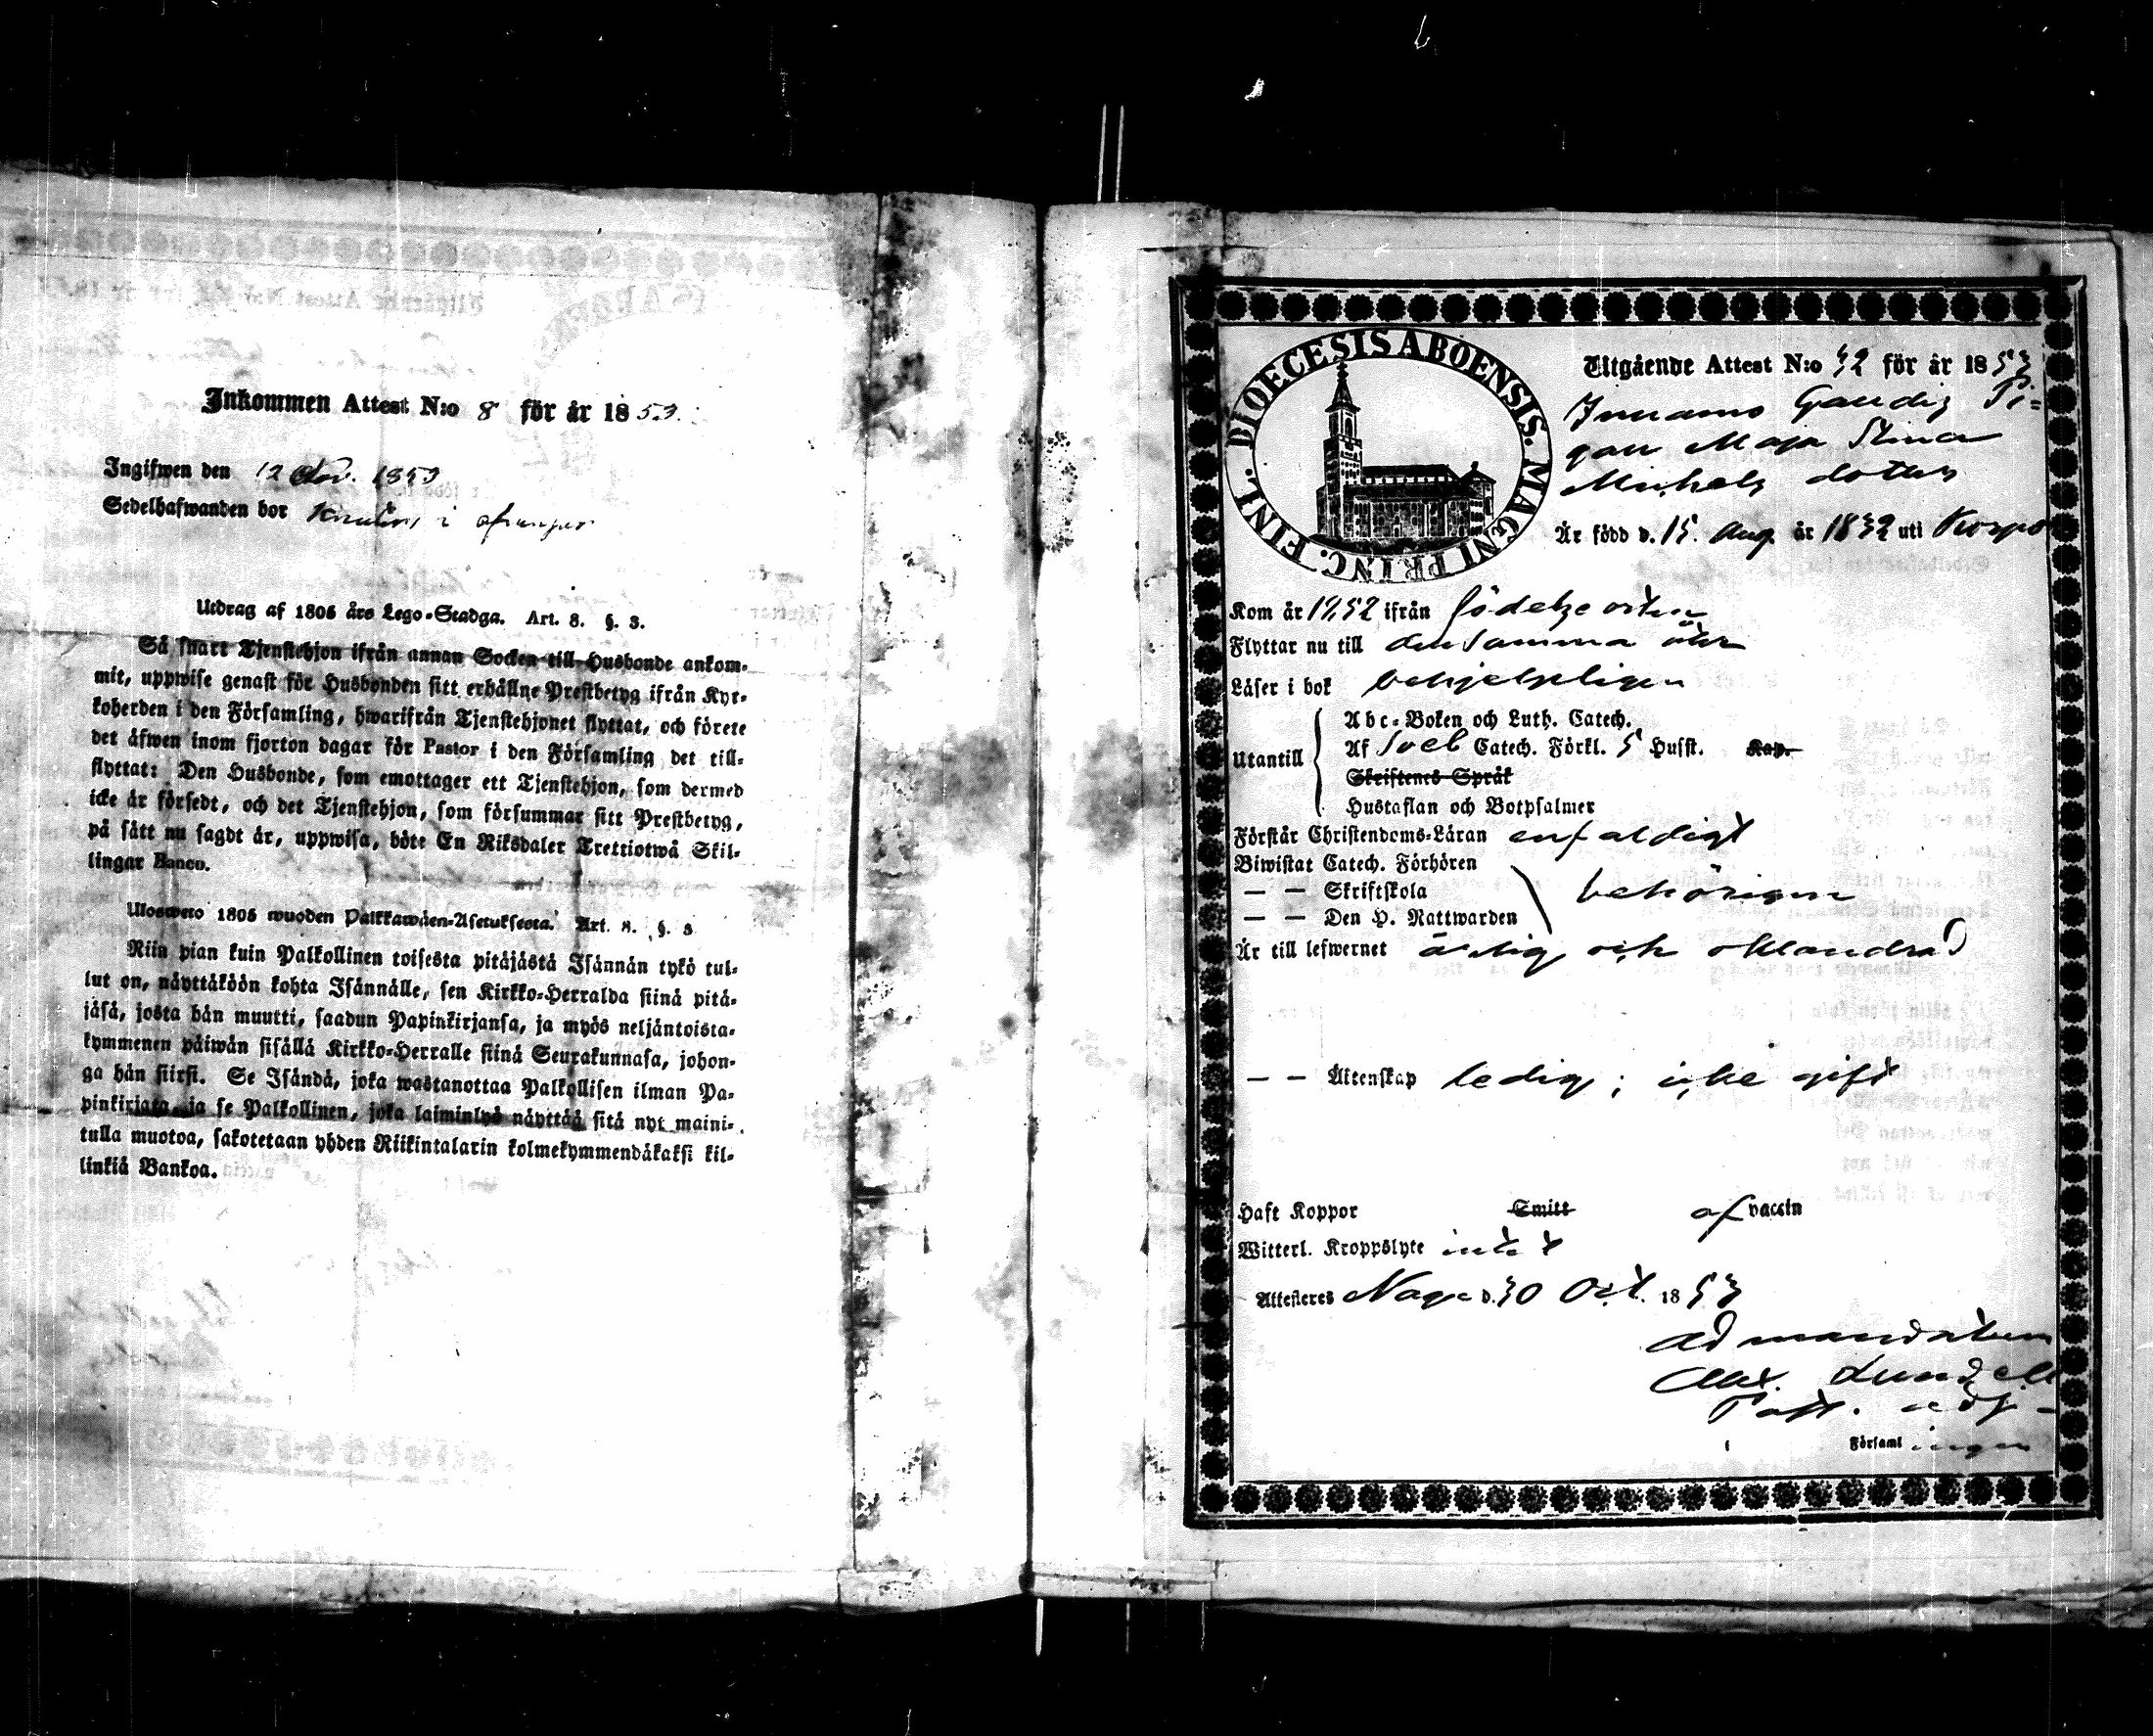 Inkommen Attest N:o 8 för år 1853.
Ingifwen den 12 Nov. 1853
Sedelhafwanden bor i
Utdrag af 1805 års Lego-Stadga. Art. 8. §. 3.
Så snart Tjenstehjon ifrån annan Socken till Husbonde ankom-
mit, uppwise genast för Husbonden sitt erhållne Prestbetyg ifrån Kyr-
koherden i den Församling, hwarifrån Tjenstehjonet flyttat, och förete
det äfwen inom fjorton dagar för Pastor i den Församling det till-
flyttat: Den Husbonde, som emottager ett Tjenstehjon, som dermed
icke är försedt, och det Tjenstehjon, som försummar sitt Prestbetyg,
på sätt nu sagdt är, uppwisa, böte En Riksdaler Trettiotwå Skil-
lingar Banco.
Ulosweto 1805 wuoden Palkkawäen-Asetuksesta. Art. 8. §. 3
Niin pian kuin Palkollinen toisesta pitäjästä Isännän tykö tul-
lut on, näyttäköön kohta Isännälle, sen Kirkko-Herralda siinä pitä-
jäsä, josta hän muutti, saadun Papinkirjansa, ja myös neljäntoista-
kymmenen päiwän sisällä Kirkko-Herralle siinä Seurakunnasa, johon-
ga hän siirsi. Se Isändä, joka wastanottaa Palkollisen ilman Pa-
pinkirjata, ja se Palkollinen, joka laiminlyö näyttää sitä nyt maini-
tulla muotoa, sakotetaan yhden Riikintalarin kolmekymmendäkaksi kil-
linkiä Bankoa.
DIOECESIS ABOENSIS. MAGNI PRINC. FINL.
Utgående Attest N:o 32 för år 1853
Pi=
gan Maja Stina
Michels dotter
Är född d. 15. Aug. år 1832 uti Korpo
Kom år 1852 ifrån födelse orten
Flyttar nu till den samma åter
Läser i bok behjelpligen
Utantill
Abc-Boken och Luth. Catech.
Af Sveb Catech. Förkl. 5 Hufst. Kap.
Skriftenes Språk
Hustaflan och Botpsalmer
Förstår Christendoms-Läran enfaldigt
Biwistat Catech. Förhören
— — Skriftskola behörigen
— — Den H. Nattwarden
Är till lefwernet ärlig och oklandrad
— — Äktenskap ledig; icke gift
Haft Koppor Smitt af vaccin
Witterl. Kroppslyte intet
Attesteres Nagu d. 30 Oct. 1853
ad mandatum
Alex. Lundell
Past. adj.
i Församlingen